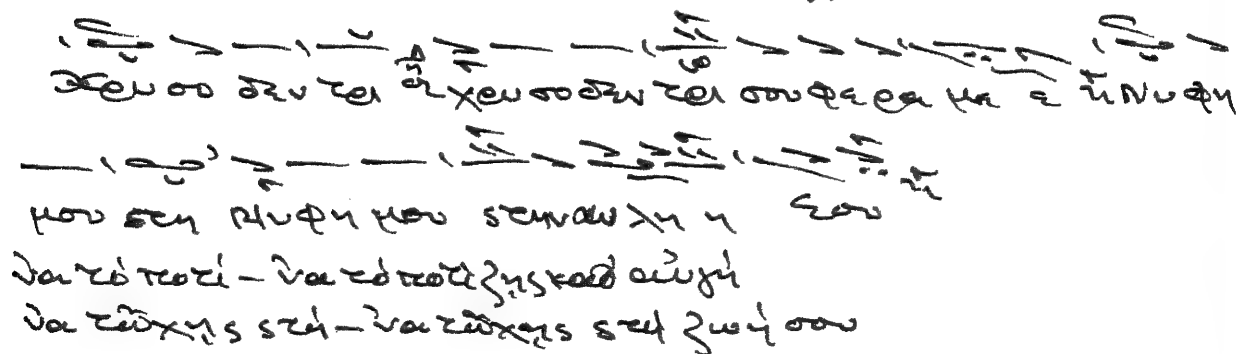 Χρυσο δεν τρι χρυσοδεν τρι σου φε ρα με ε Νυ φη
μου στη Νυ φη μου στην αυ λη η σου
νὰ τό ποτί – νὰ τό ποτίζῃς καθ αὐγή
νὰ τὤχῃς στή – νὰ τὤχῃς στή ζωή σου